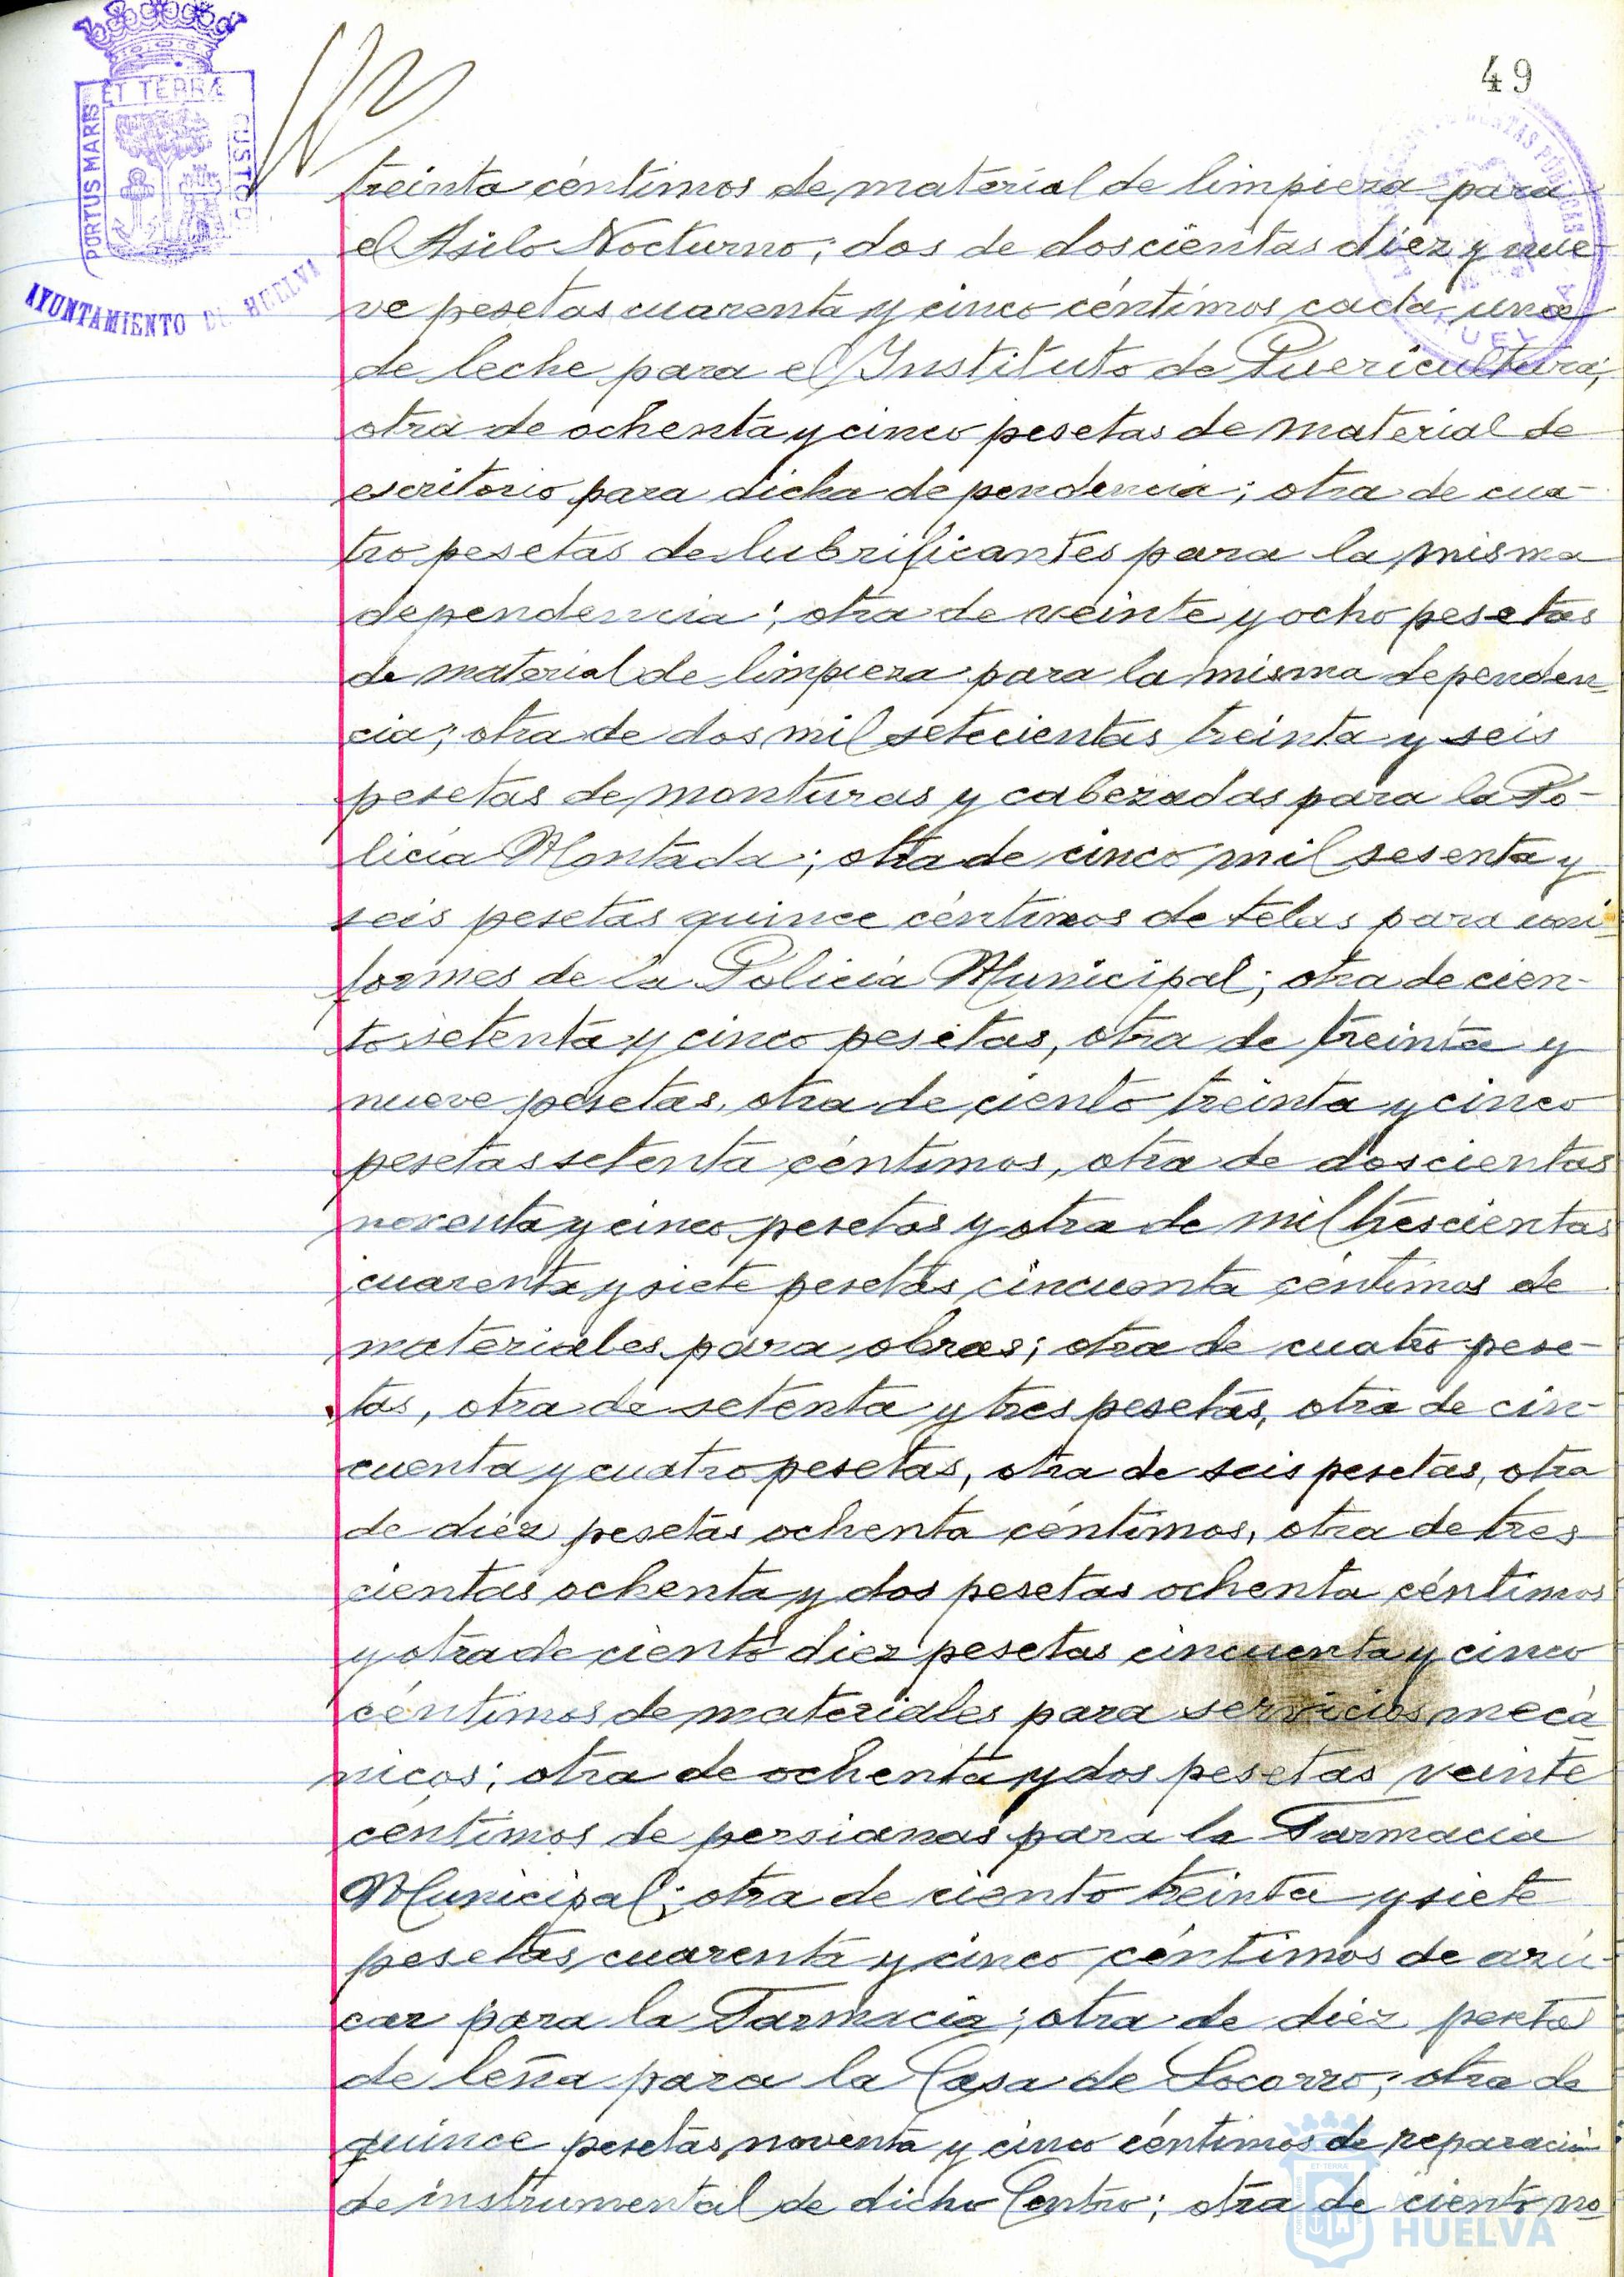 49
ET TERRÆ
PORTUS MARIS
CUSTODI
AYUNTAMIENTO DE HUELVA
treinta céntimos de material de limpieza para
el Asilo Nocturno; dos de doscientas diez y nue-
ve pesetas cuarenta y cinco céntimos cada una
de leche para el Instituto de Puericultura;
otra de ochenta y cinco pesetas de material de
escritorio para dicha dependencia; otra de cua-
tro pesetas de lubrificantes para la misma
dependencia; otra de veinte y ocho pesetas
de material de limpieza para la misma dependen-
cia; otra de dos mil setecientas treinta y seis
pesetas de monturas y cabezadas para la Po-
licía Montada; otra de cinco mil sesenta y
seis pesetas quince céntimos de telas para uni-
formes de la Policía Municipal; otra de cien-
to setenta y cinco pesetas, otra de treinta y
nueve pesetas, otra de ciento treinta y cinco
pesetas setenta céntimos, otra de doscientas
noventa y cinco pesetas y otra de mil trescientas
cuarenta y siete pesetas cincuenta céntimos de
materiales para obras; otra de cuatro pese-
tas, otra de setenta y tres pesetas, otra de cin-
cuenta y cuatro pesetas, otra de seis pesetas, otra
de diez pesetas ochenta céntimos, otra de tres
cientas ochenta y dos pesetas ochenta céntimos
y otra de ciento diez pesetas cincuenta y cinco
céntimos de materiales para servicios mecá
nicos; otra de ochenta y dos pesetas veinte
céntimos de persianas para la Farmacia
Municipal; otra de ciento treinta y siete
pesetas cuarenta y cinco céntimos de azú-
car para la Farmacia; otra de diez pesetas
de leña para la Casa de Socorro; otra de
quince pesetas noventa y cinco céntimos de reparación
de instrumental de dicho Centro; otra de ciento no-
HUELVA